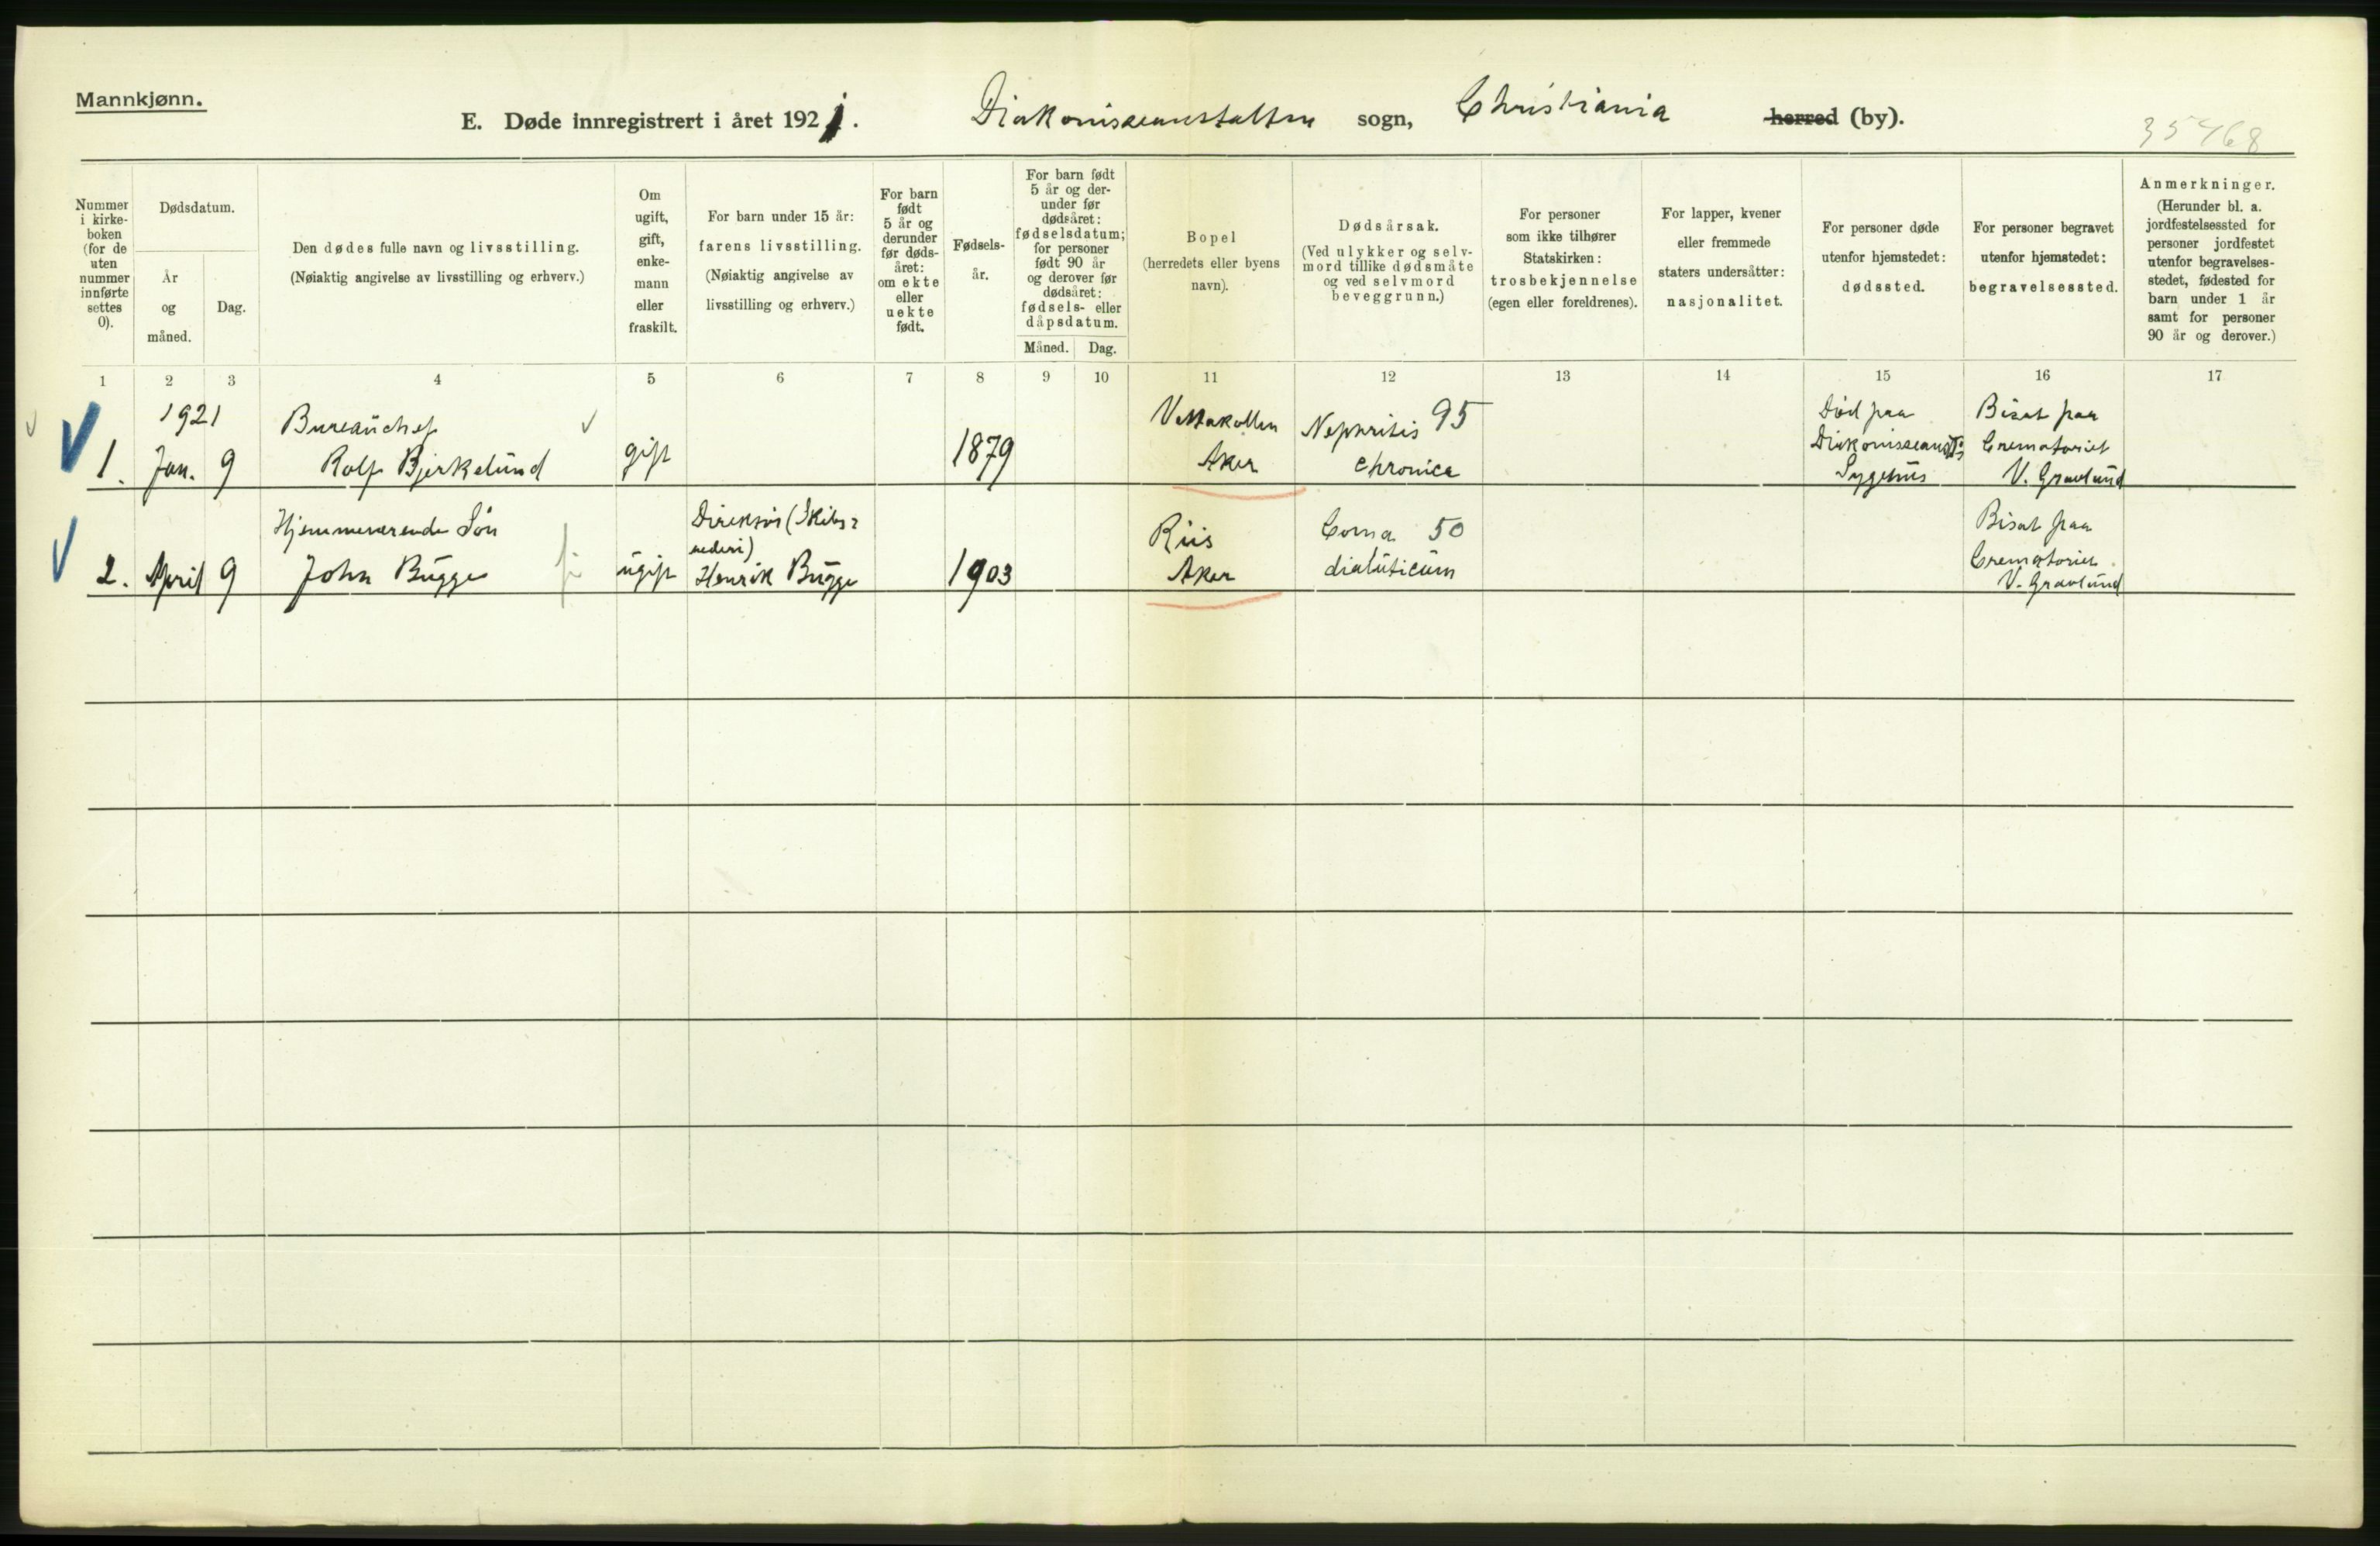 Mannkjønn.
E. Døde innregistrert i året 1921. Diakonisseanstalten sogn, Christiania herred (by).
35468
Nummer i kirke-boken (for de uten nummer innførte settes 0).
Dødsdatum.
År og måned.
Dag.
Den dødes fulle navn og livsstilling.
(Nøiaktig angivelse av livsstilling og erhverv.)
Om ugift, gift, enke-mann eller fraskilt.
For barn under 15 år:
farens livsstilling.
(Nøiaktig angivelse av livsstilling og erhverv.)
For barn født 5 år og derunder før døds-året: om ekte eller uekte født.
Fødsels-år.
For barn født 5 år og der-under før dødsåret: fødselsdatum; for personer født 90 år og derover før dødsåret: fødsels- eller dåpsdatum.
Måned. Dag.
Bopel
(herredets eller byens navn).
Dødsårsak.
(Ved ulykker og selv-mord tillike dødsmåte og ved selvmord beveggrunn.)
For personer som ikke tilhører Statskirken:
trosbekjennelse
(egen eller foreldrenes).
For lapper, kvener eller fremmede staters undersåtter:
nasjonalitet.
For personer døde utenfor hjemstedet:
dødssted.
For personer begravet utenfor hjemstedet:
begravelsessted.
Anmerkninger.
(Herunder bl. a. jordfestelsessted for personer jordfestet utenfor begravelses-stedet, fødested for barn under 1 år samt for personer 90 år og derover.)
1 2 3 4 5 6 7 8 9 10 11 12 13 14 15 16 17
1921 Bureauchef Vettakollen Nephritis 95 Død paa Bisat paa
1. Jan. 9 Rolf Bjerkelund gift 1879 Aker chronica Diakonisseanst. Crematoriet
Sygehus V. Gravlund
Hjemmeværende Søn Direktør (Skibs=
rederi) Riis Coma 50 Bisat paa
2. April 9 John Bugge ugift Henrik Bugge 1903 Aker diabeticum Crematoriet
V. Gravlund